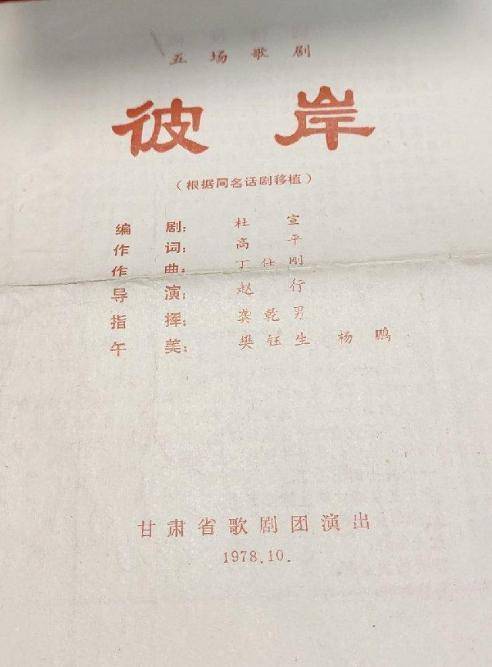 五场歌剧
彼岸
（根据同名话剧移植）
编剧：杜宣
作词：高平
作曲：丁仕刚
导演：赵行
指挥：龚乾男
午美：樊钰生 杨鹏
甘肃省歌剧团演出
1978.10.